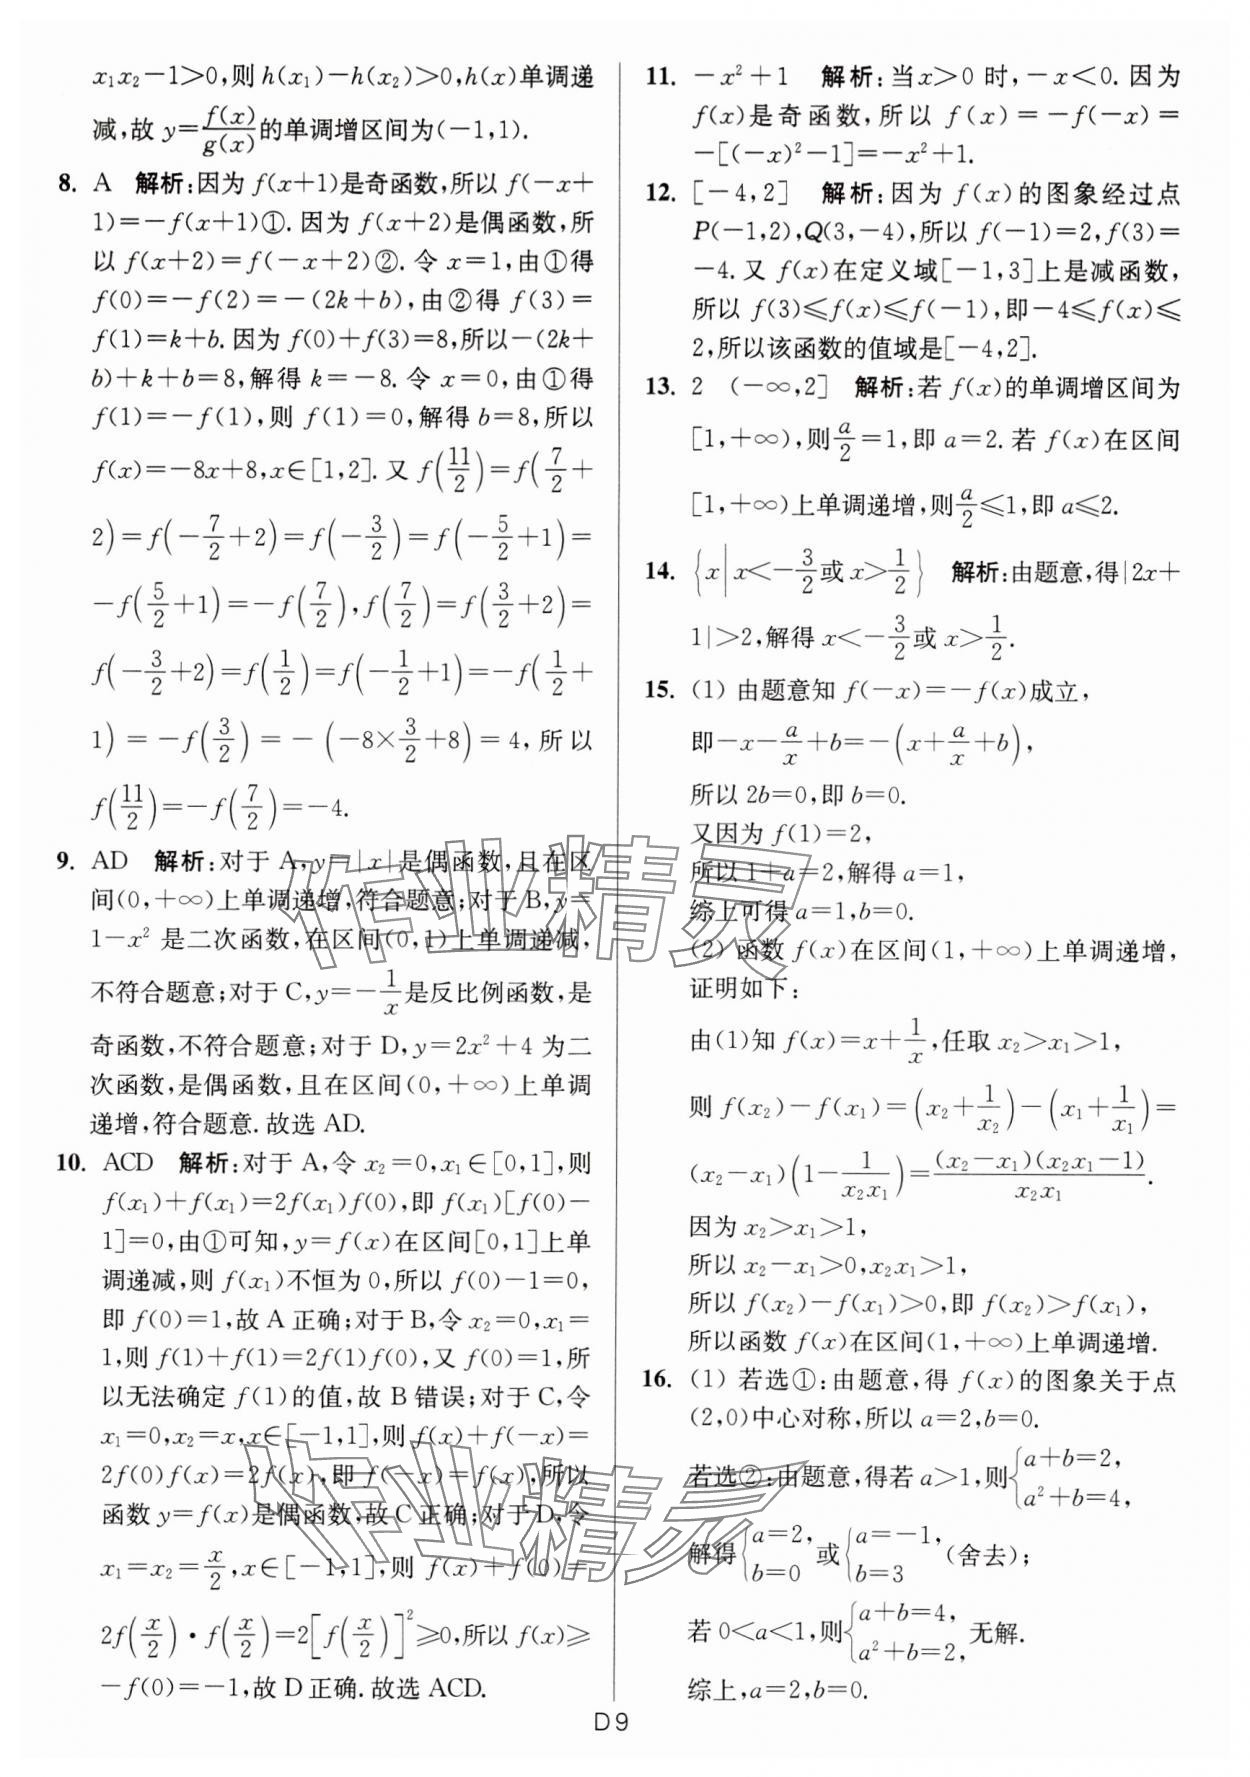 x₁x₂-1>0,则h(x₁)-h(x₂)>0,h(x)单调递
减,故 y=f(x)/g(x)的单调增区间为(-1,1).
8. A 解析:因为 f(x+1)是奇函数,所以 f(-x+
1)=-f(x+1)①.因为 f(x+2)是偶函数,所
以 f(x+2)=f(-x+2)②.令 x=1,由①得
f(0)=-f(2)=-(2k+b),由②得 f(3)=
f(1)=k+b.因为 f(0)+f(3)=8,所以-(2k+
b)+k+b=8,解得 k=-8.令 x=0,由①得
f(1)=-f(1),则 f(1)=0,解得 b=8,所以
f(x)=-8x+8,x∈[1,2].又 f(11/2)=f(7/2+
2)=f(-7/2+2)=f(-3/2)=f(-5/2+1)=
-f(5/2+1)=-f(7/2),f(7/2)=f(3/2+2)=
f(-3/2+2)=f(1/2)=f(-1/2+1)=-f(1/2+
1)=-f(3/2)=-(-8×3/2+8)=4,所以
f(11/2)=-f(7/2)=-4.
9. AD 解析:对于 A,y=|x|是偶函数,且在区
间(0,+∞)上单调递增,符合题意;对于 B,y=
1-x² 是二次函数,在区间(0,1)上单调递减,
不符合题意;对于 C,y=-1/x是反比例函数,是
奇函数,不符合题意;对于 D,y=2x²+4 为二
次函数,是偶函数,且在区间(0,+∞)上单调
递增,符合题意.故选 AD.
10. ACD 解析:对于 A,令 x₂=0,x₁∈[0,1],则
f(x₁)+f(x₁)=2f(x₁)f(0),即 f(x₁)[f(0)-
1]=0,由①可知,y=f(x)在区间[0,1]上单
调递减,则 f(x₁)不恒为 0,所以 f(0)-1=0,
即 f(0)=1,故 A 正确;对于 B,令 x₂=0,x₁=
1,则 f(1)+f(1)=2f(1)f(0),又 f(0)=1,所
以无法确定 f(1)的值,故 B 错误;对于 C,令
x₁=0,x₂=x,x∈[-1,1],则 f(x)+f(-x)=
2f(0)f(x)=2f(x),即 f(-x)=f(x),所以
函数 y=f(x)是偶函数,故 C 正确;对于 D,令
x₁=x₂=x/2,x∈[-1,1],则 f(x)+f(0)=
2f(x/2)·f(x/2)=2[f(x/2)]²≥0,所以 f(x)≥
-f(0)=-1,故 D 正确.故选 ACD.
11. -x²+1 解析:当x>0 时,-x<0.因为
f(x)是奇函数,所以 f(x)=-f(-x)=
-[(-x)²-1]=-x²+1.
12. [-4,2] 解析:因为 f(x)的图象经过点
P(-1,2),Q(3,-4),所以 f(-1)=2,f(3)=
-4.又 f(x)在定义域[-1,3]上是减函数,
所以 f(3)≤f(x)≤f(-1),即-4≤f(x)≤
2,所以该函数的值域是[-4,2].
13. 2 (-∞,2] 解析:若 f(x)的单调增区间为
[1,+∞),则a/2=1,即 a=2.若 f(x)在区间
[1,+∞)上单调递增,则a/2≤1,即 a≤2.
14. {x|x<-3/2或 x>1/2} 解析:由题意,得|2x+
1|>2,解得 x<-3/2或 x>1/2.
15. (1) 由题意知 f(-x)=-f(x)成立,
即-x-a/x+b=-(x+a/x+b),
所以 2b=0,即 b=0.
又因为 f(1)=2,
所以 1+a=2,解得 a=1,
综上可得 a=1,b=0.
(2) 函数 f(x)在区间(1,+∞)上单调递增,
证明如下:
由(1)知 f(x)=x+1/x,任取 x₂>x₁>1,
则 f(x₂)-f(x₁)=(x₂+1/x₂)-(x₁+1/x₁)=
(x₂-x₁)(1-1/(x₂x₁))=(x₂-x₁)(x₂x₁-1)/(x₂x₁).
因为 x₂>x₁>1,
所以 x₂-x₁>0,x₂x₁>1,
所以 f(x₂)-f(x₁)>0,即 f(x₂)>f(x₁),
所以函数 f(x)在区间(1,+∞)上单调递增.
16. (1) 若选①:由题意,得 f(x)的图象关于点
(2,0)中心对称,所以 a=2,b=0.
若选②:由题意,得若 a>1,则{a+b=2, a²+b=4,
解得{a=2, b=0 或{a=-1, b=3 (舍去);
若 0<a<1,则{a+b=4, a²+b=2, 无解.
综上,a=2,b=0.
D9
作业精灵
作业精灵